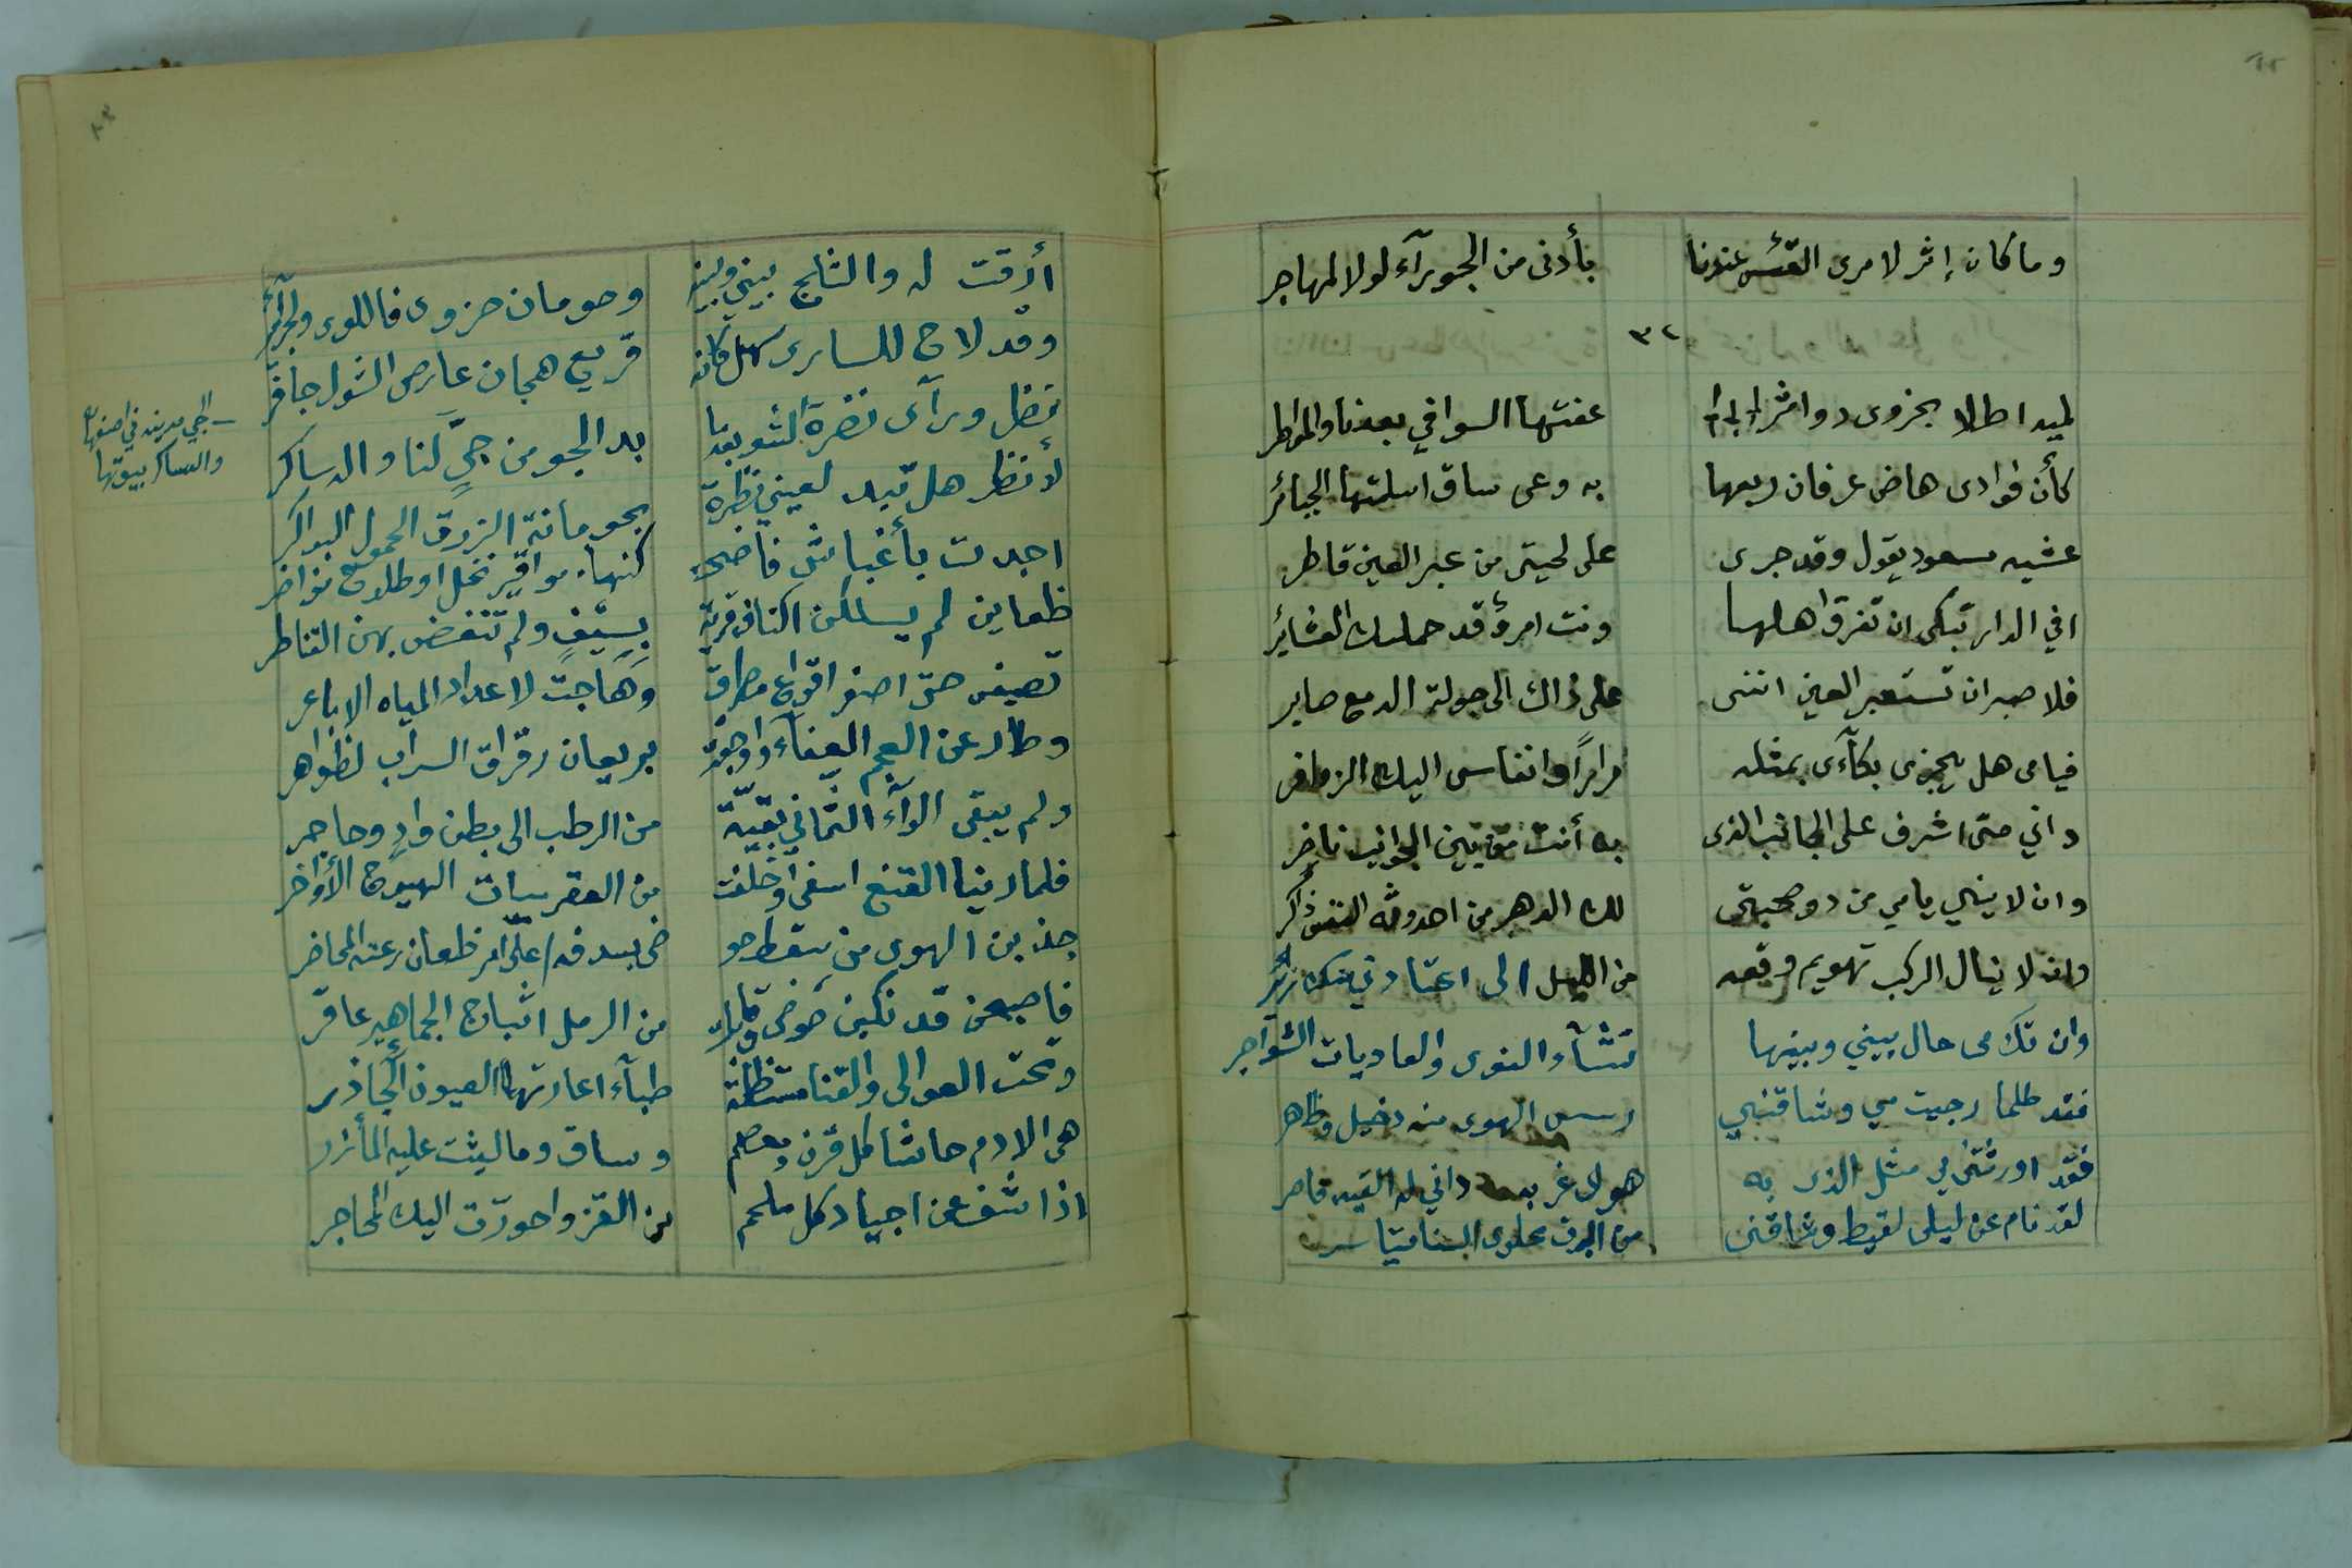 وما كان إثر لامرى القئس عندنا
بأدنى من الجوبرآء لولا المهاجر
٣٢
لميه اطلالا بحزوى دواثر
عفتها السوافي بعدنا والمواطر
كأن فؤادى هاض عرفان ربعها
به وعى ساق اسلمتها الجبائر
عشيه مسعود يقول وقد جرى
على لحيتى من عبر العين قاطر
افي الدار تبكى ان تفرق اهلها
ونت امرؤ قد حملك العشائر
فلا صبر ان تستعبر العين اننى
على ذاك الى جولة الدمع صابر
فيامى هل يجزى بكآءى بمثله
مرارًا وانفاسى اليك الزوافر
واني متى اشرف على الجانب الذى
به أنت من بين الجوانب ناظر
وان لا يني يامي من دو صحبتى
لك الدهر من احدوثه النفس ذاكر
وان لا ينال الركب تهويم وقعه
من الليل الى اعتادني منك زائر
وان تك مى حال بيني وبينها
تشآء النوى والعاديات الشواجر
فقد طلما رجيت مي وشاقني
رسس الهوى منه دخيل وظاهر
فقد اورثتنى مي مثل الذى به
هوى غربه داني له القيد قاصر
لقد نام عن ليلى لقيط وشاقنى
من البرق علوى السنا متياسر
أرقت له والثلج بيني وبينه
وحومان حزوى فاللوى والحرآئر
وقد لاح للسارى سهيل كانه
قريع هجان عارض الشول جافر
نظل ورآى نضرة الشو بعدنا
بدا الجو من جيٍّ لنا والدساكر
لأنظر هل تبدو لعيني نظرة
بحومانة الزرق الحمول البواكر
اجدت بأغباش فاضحت
كنها مواقير نخل او طلوع نواضر
ظعاين لم يسلكن اكناف قرية
بسيفٍ ولم تنغض بهن القناطر
تصيفن حتى اصفر اقواع مطرق
وهاجت لاعداد المياه الاباعر
وطار عن العجم العفآء واوجفت
بريعان رقراق السراب الظواهر
ولم يبقى الوآء الثماني بقيّة
من الرطب الى بطن وادٍ وحاجر
فلما رينا القنع اسفى واخلفت
من العقربيات الهيوج الأواخر
جذبن الهوى من سقط حو
ضى بسدفه على امر ظعان رعته المحاضر
فاصبحن قد نكبن حوضى وقابلت
من الرمل اثباج الجماهير عاقر
وتحت العوالى والقنا مستظلة
ظبآء اعارتها العيون الجآذر
هى الادم حاشا كل قرن ومعصم
وساق وما ليثت عليه المأزر
اذا شف عن اجياد كل ملحم
من القز واحورّت اليك المحاجر
الجي مدينه في اصفهان
والدساكر بيوتها